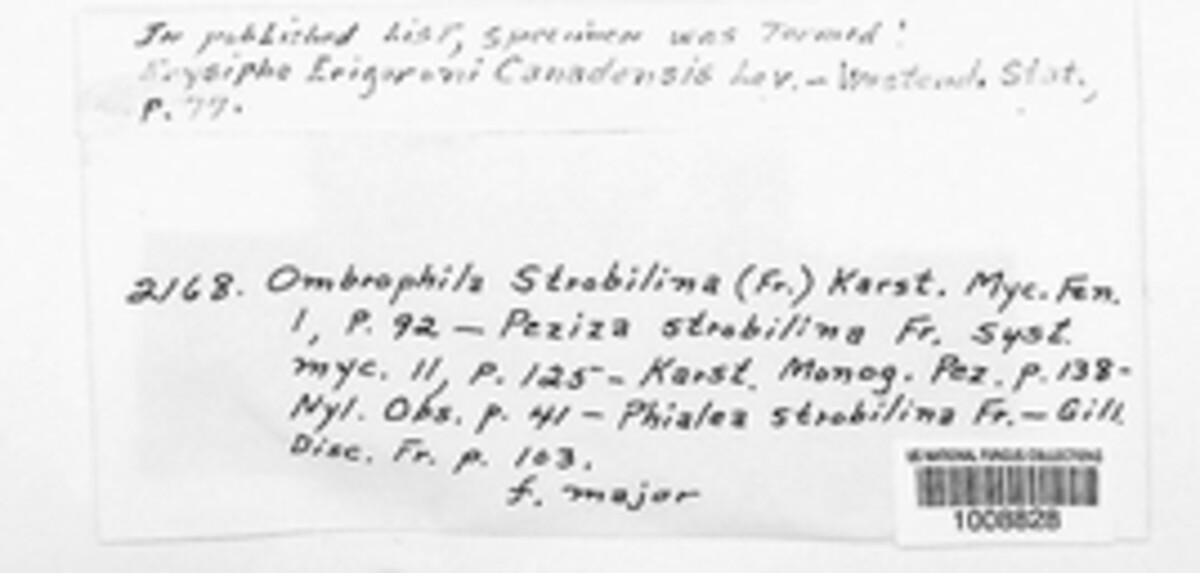 In published list, specimen was termed:
Erysiphe Erigeroni Canadensis Lev. - Westend. Stat.,
P. 77.
2168. Ombrophila Strobilina (Fr.) Karst. Myc. Fen.
1, P. 92 - Peziza strobilina Fr. Syst.
myc. 11, p. 125 - Karst. Monog. Pez. p. 138 -
Nyl. Obs. p. 41 - Phialea strobilina Fr. - Gill.
Disc. Fr. p. 103.
f. major
US NATIONAL FUNGUS COLLECTIONS
1008828